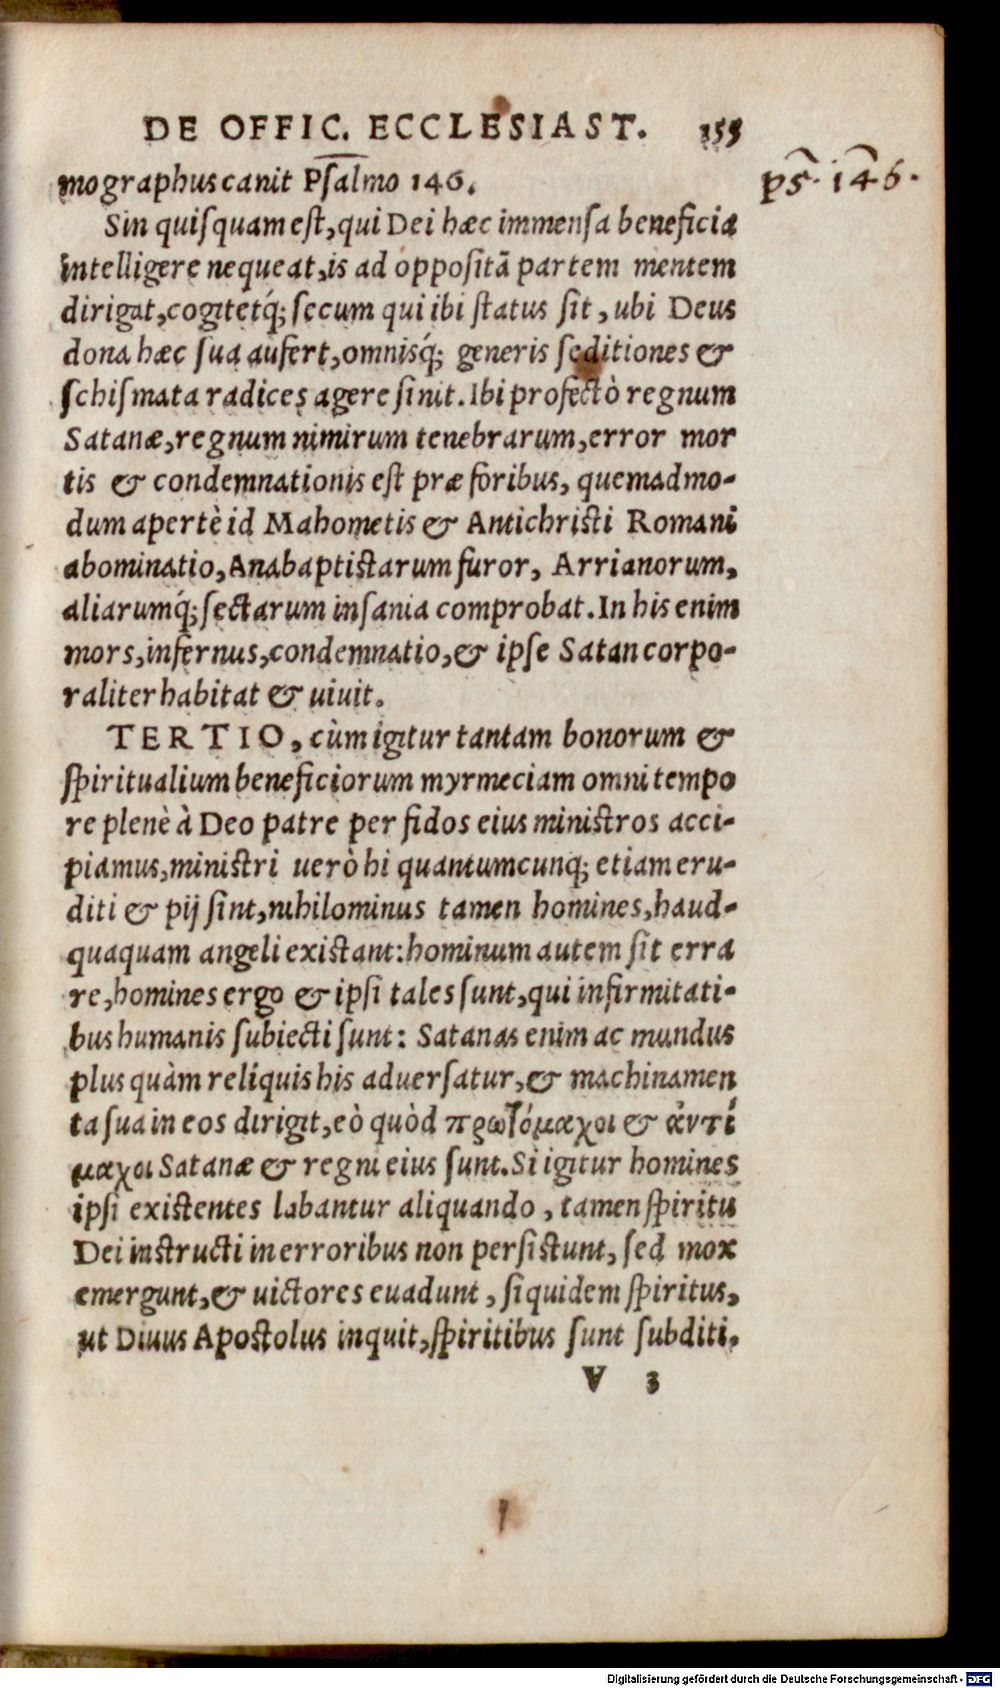 DE OFFIC. ECCLESIAST. 155
mographus canit Psalmo 146.
ps. 146.
Sin quiſquam eſt, qui Dei hæc immenſa beneficia
intelligere nequeat, is ad oppoſitã partem mentem
dirigat, cogitetq́; ſecum qui ibi ſtatus ſit, ubi Deus
dona hæc ſua aufert, omnisq́; generis ſeditiones &
ſchiſmata radices agere ſinit. Ibi profectò regnum
Satanæ, regnum nimirum tenebrarum, error mor
tis & condemnationis eſt præ foribus, quemadmo-
dum apertè id Mahometis & Antichriſti Romani
abominatio, Anabaptiſtarum furor, Arrianorum,
aliarumq́; ſectarum inſania comprobat. In his enim
mors, infernus, condemnatio, & ipſe Satan corpo-
raliter habitat & uiuit.
TERTIO, cùm igitur tantam bonorum &
ſpiritualium beneficiorum myrmeciam omni tempo
re plenè à Deo patre per fidos eius miniſtros acci-
piamus, miniſtri uerò hi quantumcunq; etiam eru-
diti & pij ſint, nihilominus tamen homines, haud-
quaquam angeli exiſtant: hominum autem ſit erra
re, homines ergo & ipſi tales ſunt, qui infirmitati-
bus humanis ſubiecti ſunt: Satanas enim ac mundus
plus quàm reliquis his aduerſatur, & machinamen
ta ſua in eos dirigit, eò quòd πρωτόμαχοι & ἀντί
μαχοι Satanæ & regni eius ſunt. Si igitur homines
ipſi exiſtentes labantur aliquando, tamen ſpiritu
Dei inſtructi in erroribus non perſiſtunt, ſed mox
emergunt, & uictores euadunt, ſiquidem ſpiritus,
ut Diuus Apoſtolus inquit, ſpiritibus ſunt ſubditi.
V 3
Digitalisierung gefördert durch die Deutsche Forschungsgemeinschaft - DFG